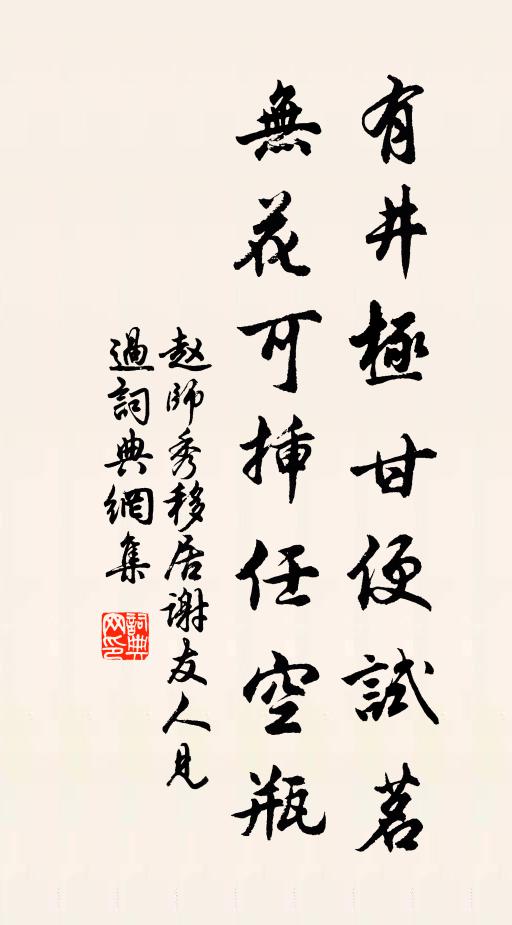 有井極甘便試茗
無花可揷任空瓶
赵師秀移居謝友人見
過詞典網集
詞典
网印